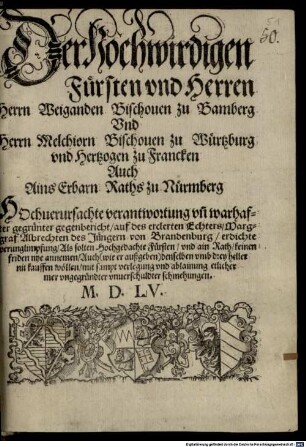 Der Hochwirdigen
Fürsten vnd Herren
Herrn Weiganden Bischouen zu Bamberg
Vnd
Herrn Melchiorn Bischouen zu Würtzburg
vnd Hertzogen zu Francken
Auch
Ains Erbarn Raths zu Nürmberg
Hochuerursachte verantwortung vñ warhaf-
ter gegrünter gegenbericht/auf des erclerten Echters/Marg-
graf Albrechten des Jüngern von Brandenburg/erdichte
verunglimpfung/Als solten Hochgedachte Fürsten/vnd ain Rath/seinen
friden nye annemen/Auch (wie er außgeben) denselben vmb drey heller
nit kauffen wöllen/mit sampt verlegung vnd ablainung etlicher
mer vngegründter vnuerschuldter schmehungen.
M. D. LV.
50.